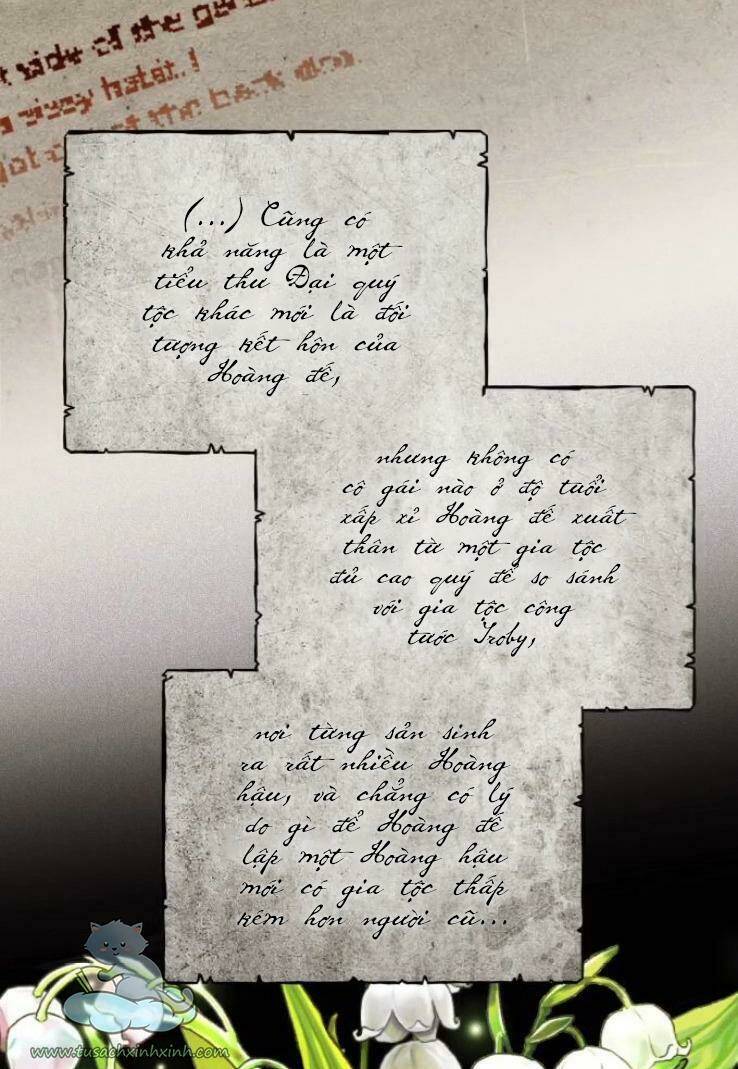 t side of the
(...) Cũng có
khả năng là một
tiểu thư Đại quý
tộc khác mới là đối
tượng kết hôn của
Hoàng đế,
nhưng không có
cô gái nào ở độ tuổi
xấp xỉ Hoàng đế xuất
thân từ một gia tộc
đủ cao quý để so sánh
với gia tộc công
tước Troby,
nơi từng sản sinh
ra rất nhiều Hoàng
hậu, và chẳng có lý
do gì để Hoàng đế
lập một Hoàng hậu
mới có gia tộc thấp
kém hơn người cũ...
www.tusachxinhxinh.com